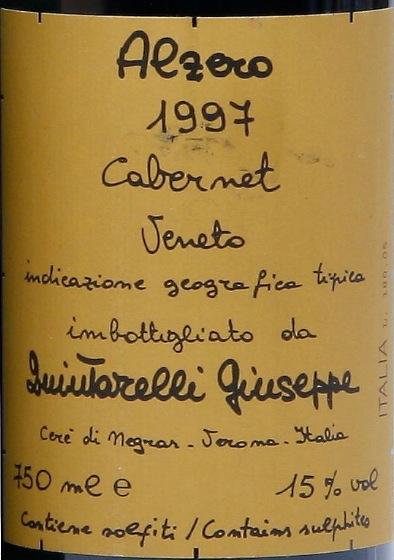 Alzero
1997
Cabernet
Veneto
indicazione geografica tipica
imbottigliato da
Quintarelli Giuseppe
Cerè di Negrar - Verona - Italia
750 ml e 15% vol
Contiene solfiti / Contains sulphites
ITALIA L. 180.05